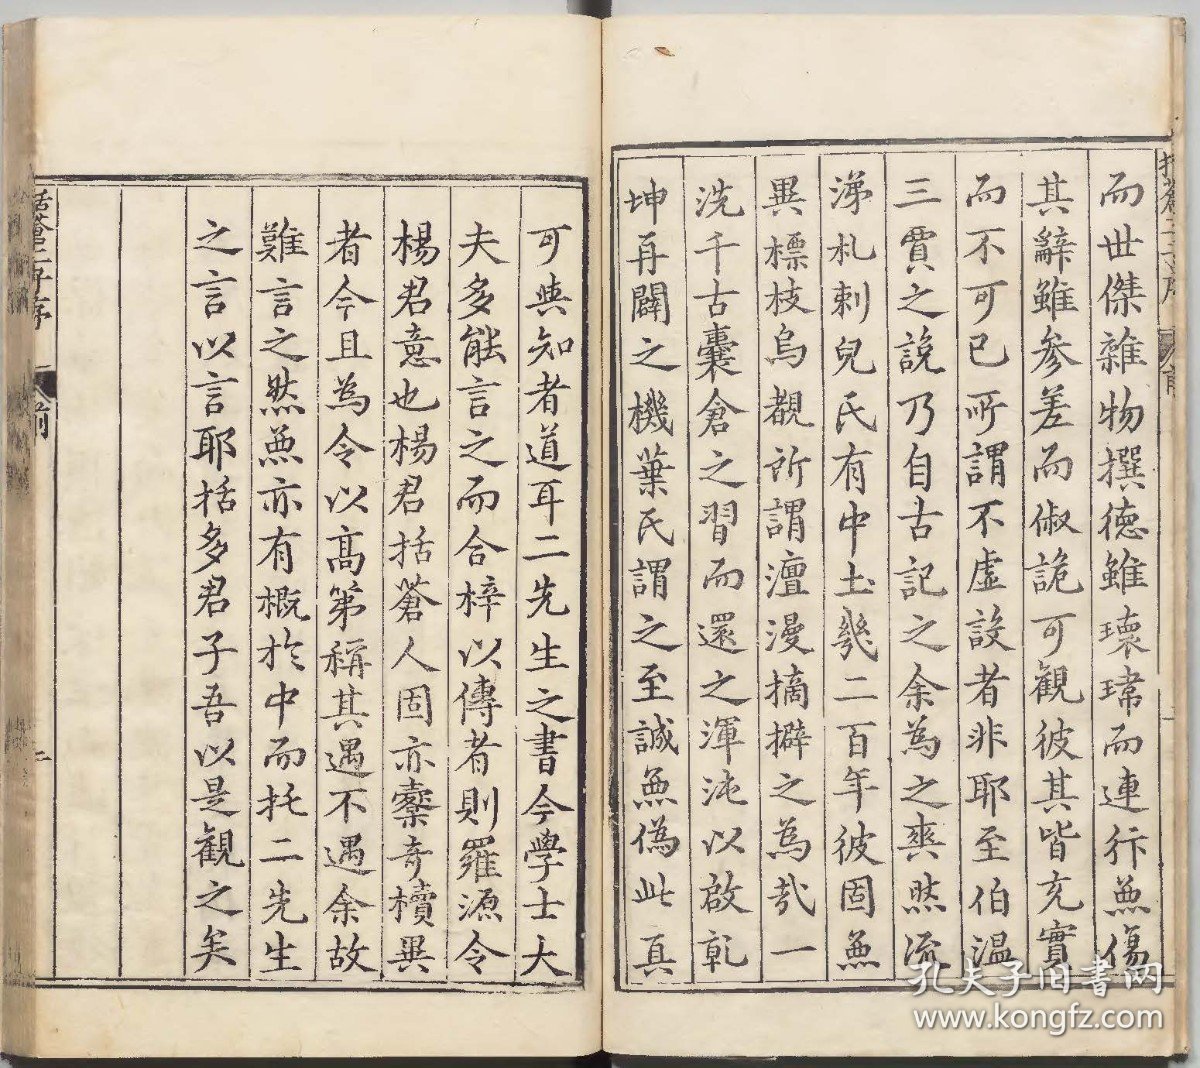 而世傑雜物撰德雖瓌瑋而連犿無傷
其辭雖參差而俶詭可觀彼其皆充實
而不可已所謂不虛設者非耶至伯温
三賁之說乃自古記之余為之爽然流
涕札剌兒氏有中土幾二百年彼固無
異標枝烏覩所謂澶漫摘擗之為哉一
洗千古囊倉之習而還之渾沌以啟乾
坤再闢之機葉氏謂之至誠無偽此真
可與知者道耳二先生之書今學士大
夫多能言之而合梓以傳者則羅源令
楊君意也楊君括蒼人固亦櫜奇櫝異
者今且為令以高第稱其遇不遇余故
難言之然無亦有概於中而托二先生
之言以言耶括多君子吾以是觀之矣
括蒼二子序
前
孔夫子旧书网
www.kongfz.com